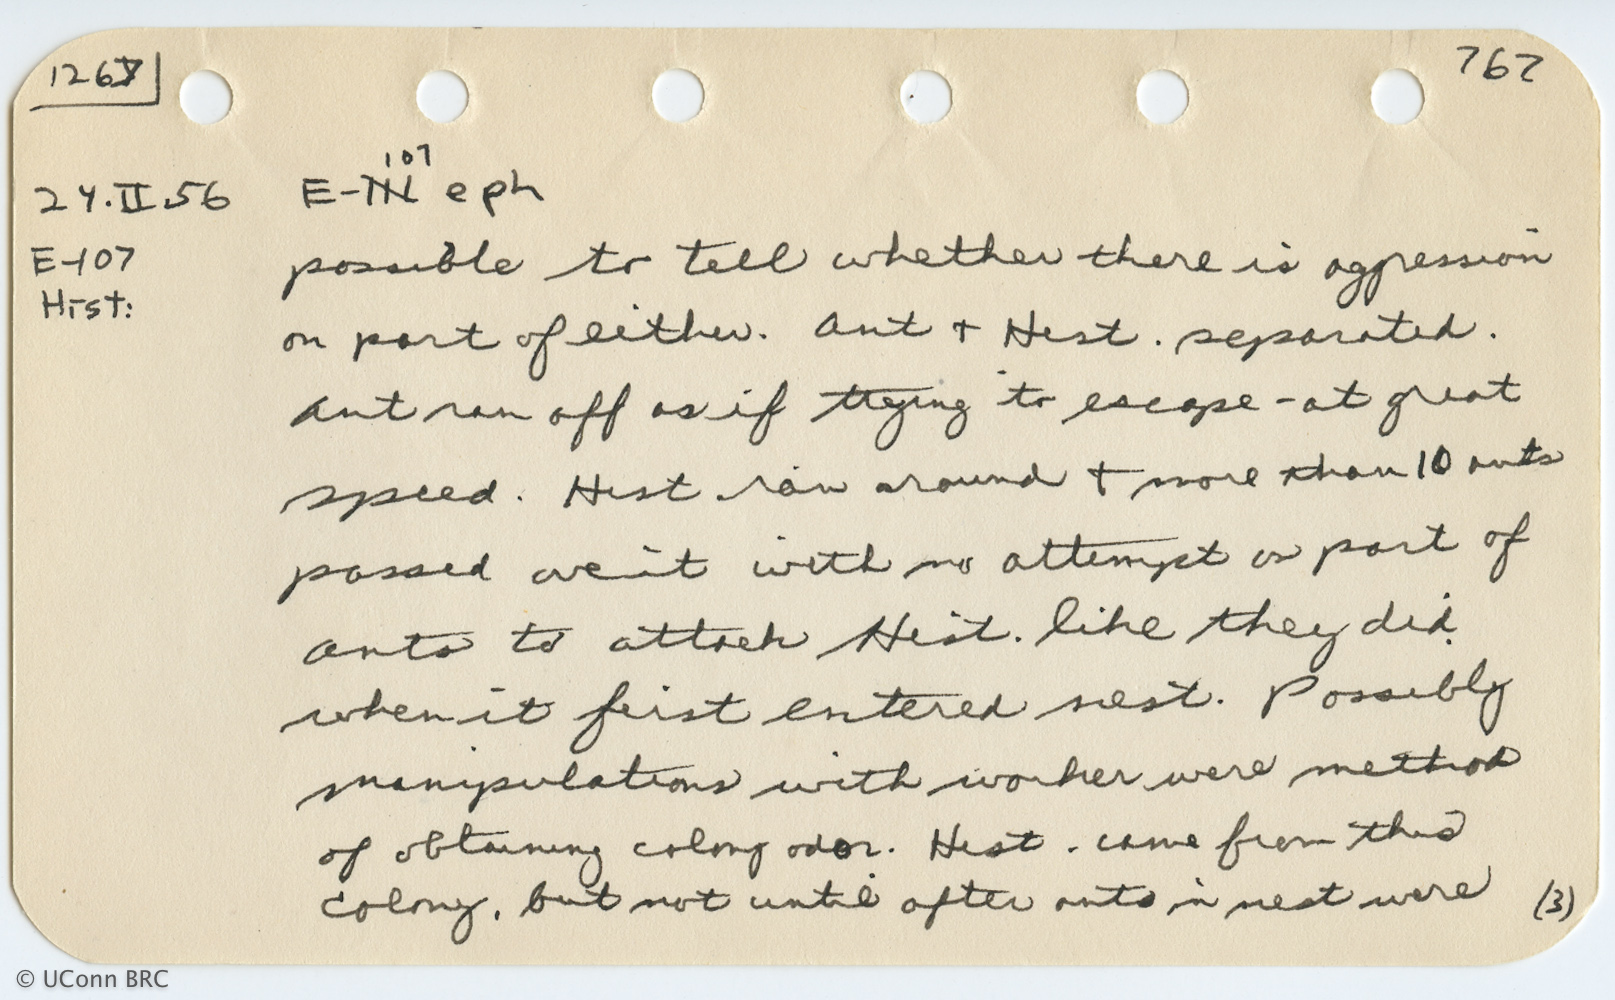 1267
767
24.II.56
E-107 eph
E-107
Hist:
possible to tell whether there is aggression
on part of either. Ant + Hist. separated.
Ant ran off as if trying to escape - at great
speed. Hist ran around + more than 10 ants
passed over it with no attempt on part of
ants to attack Hist. like they did
when it first entered nest. Possibly
manipulations with worker were method
of obtaining colony odor. Hist. came from this
colony, but not until after ants in nest were
(3)
© UConn BRC